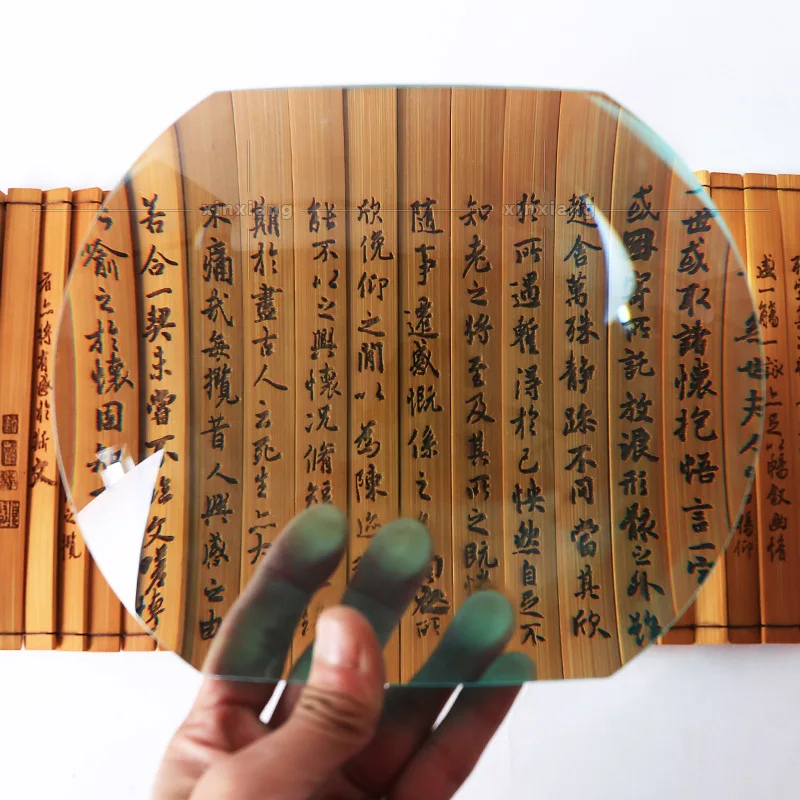 盛一觴一詠亦足以暢叙幽情
夫人
一世或取諸懷抱悟言一室
或因寄所託放浪形骸之外雖
趣舍萬殊靜躁不同當其欣
於所遇暫得於己怏然自足不
知老之將至及其所之既惓
隨事遷感慨係之
欣俛仰之閒以為陳迹
能不以之興懷況脩短
期於盡古人云死生亦大
不痛哉每攬昔人興感之由
若合一契未嘗不臨文嗟悼
喻之於懷固知一
之攬
者亦將有感於斯文
xinxiang
xinxiang